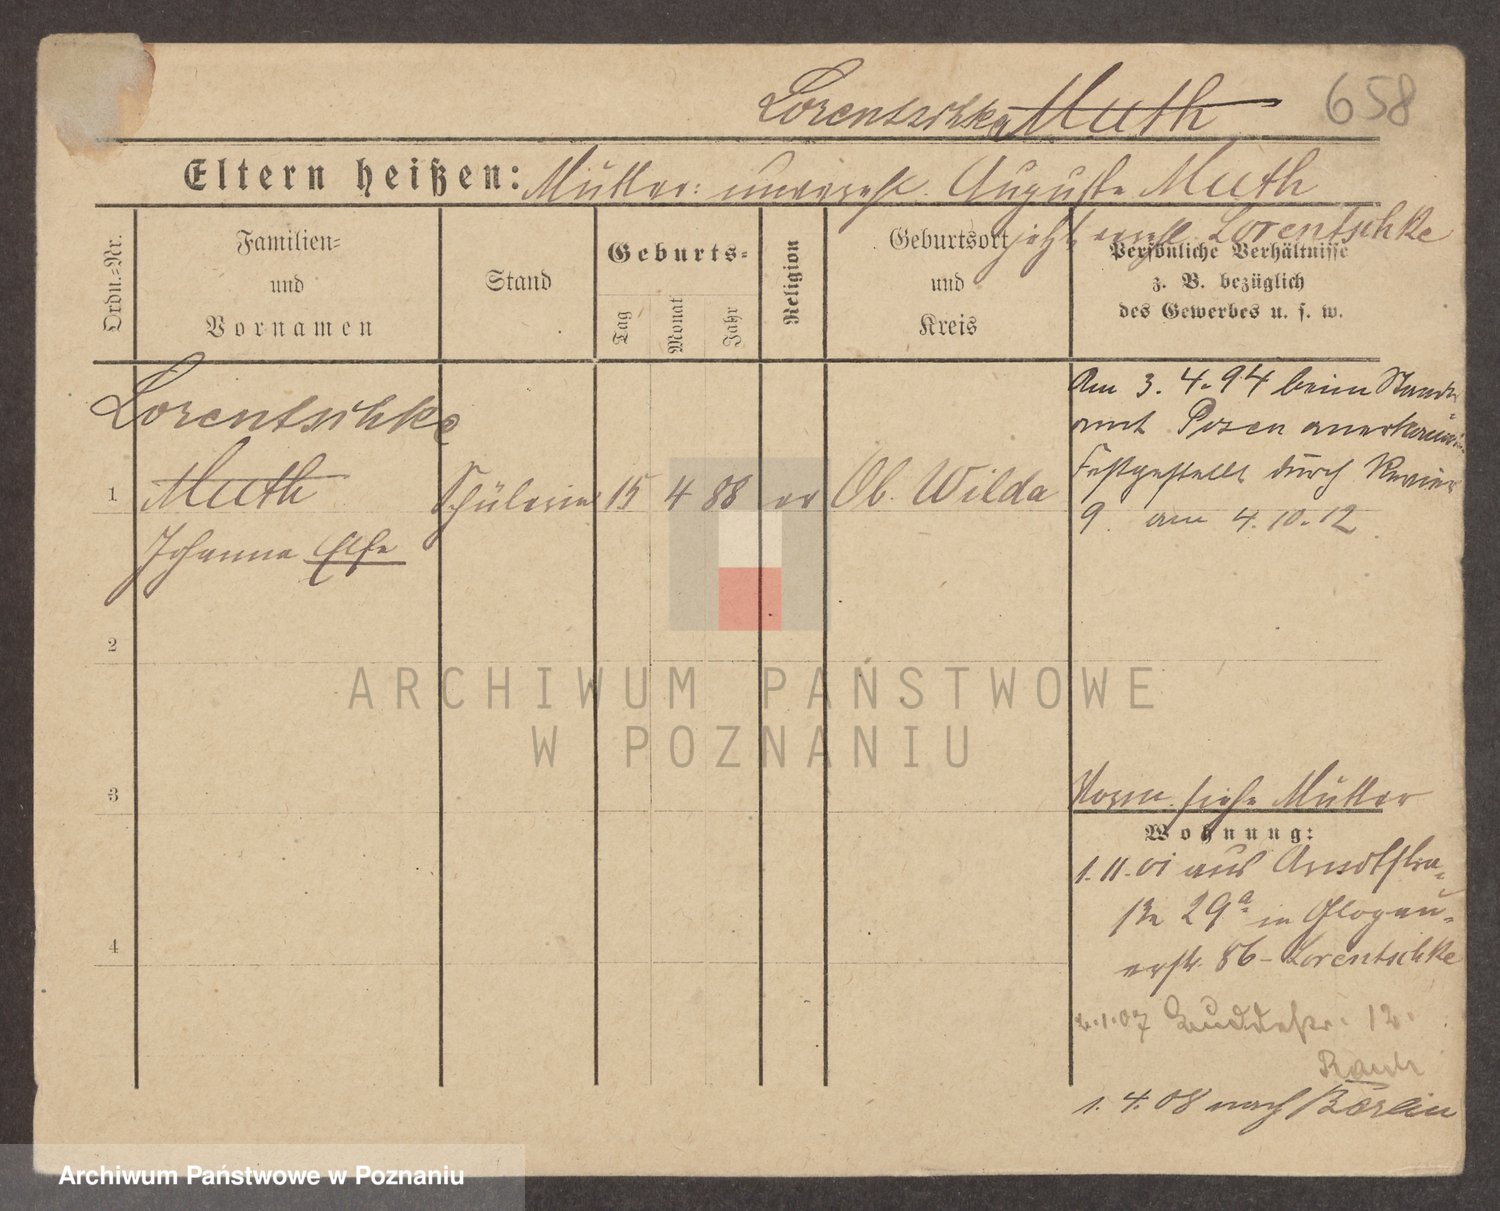 Lorentschke Muth 658
Eltern heißen: Mutter: unverehl. Auguste Muth
jetzt verehl. Lorentschke
Ordn.-Nr.
Familien-
und
Vornamen
Stand
Geburts-
Tag
Monat
Jahr
Religion
Geburtsort
und
Kreis
Persönliche Verhältnisse
z. B. bezüglich
des Gewerbes u. s. w.
Lorentschke
1 Muth Schülerin 15 4 88 ev Ob. Wilda
Johanna Else
Am 3.4.94 beim Stand-
amt Posen anerkannt
Festgestellt durch Revier
9 am 4.10.12
2
3
4
Vorm. siehe Mutter
Wohnung:
1.11.01 aus Arndtstra-
ße 29a in Glogau-
erstr. 86 - Lorentschke
2.1.07 Buddestr. 12.
1.4.08 nach Berlin
ARCHIWUM PAŃSTWOWE
W POZNANIU
Archiwum Państwowe w Poznaniu